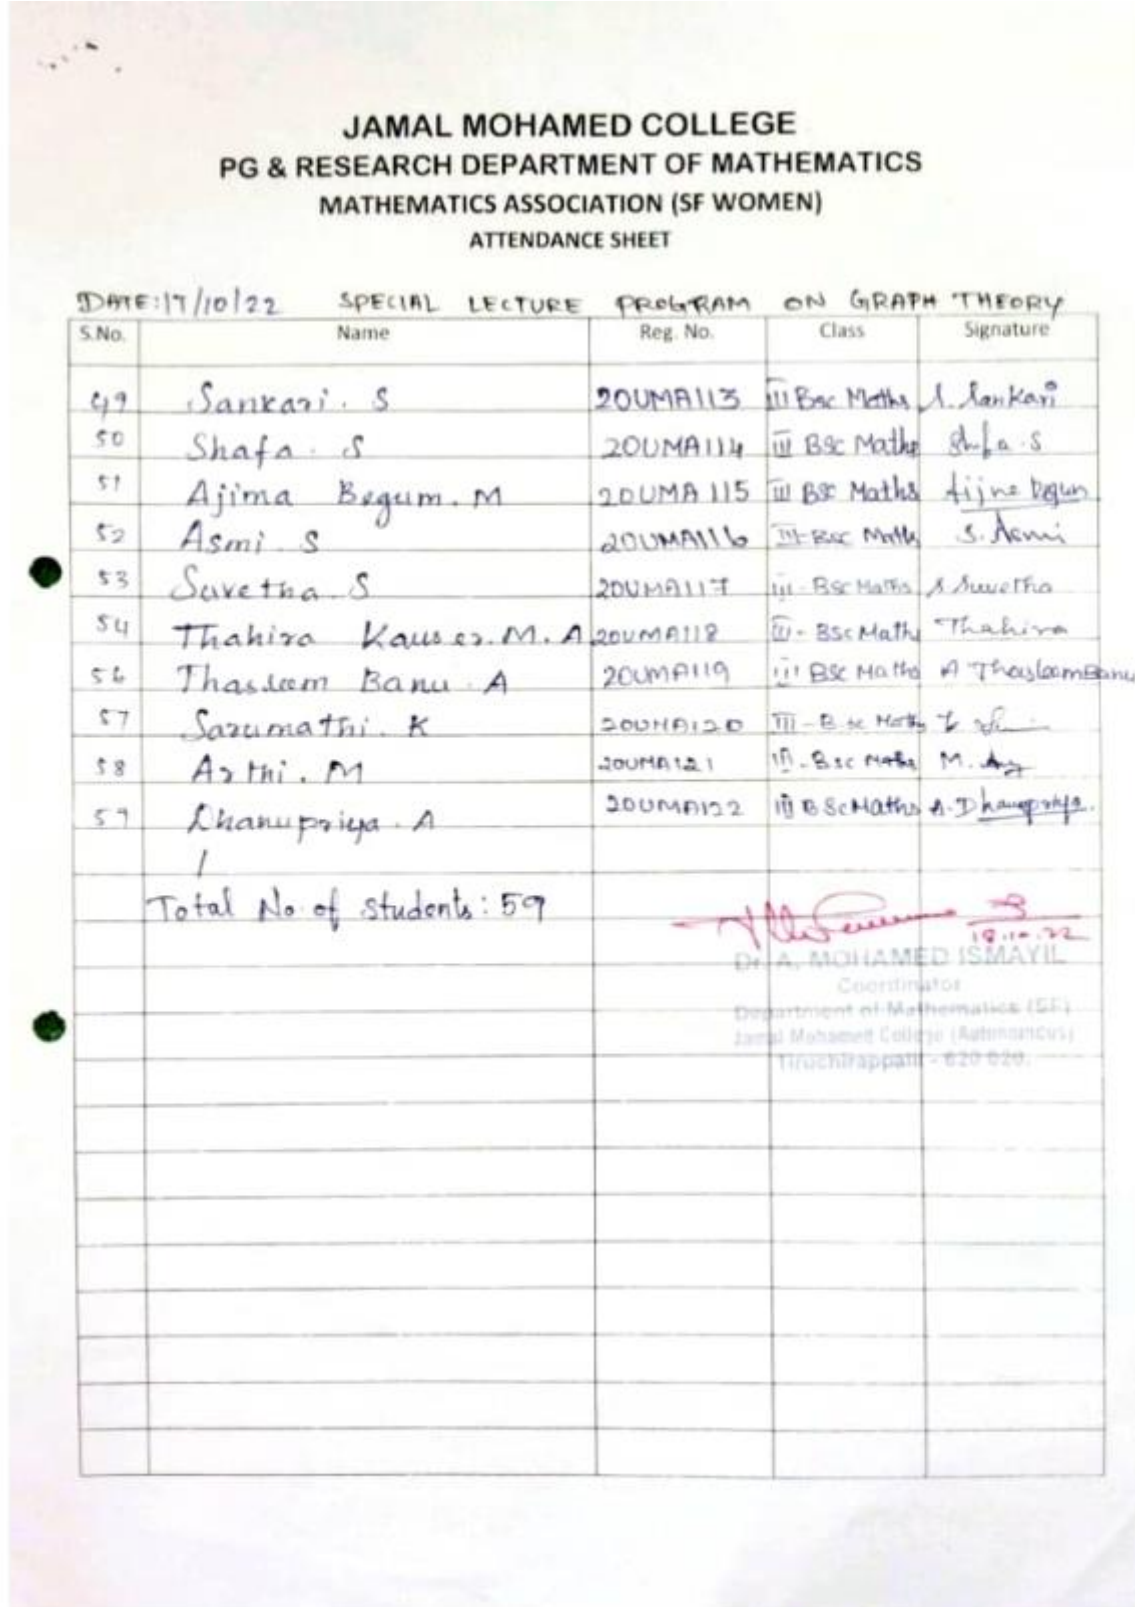 JAMAL MOHAMED COLLEGE
PG & RESEARCH DEPARTMENT OF MATHEMATICS
MATHEMATICS ASSOCIATION (SF WOMEN)
ATTENDANCE SHEET
DATE:17/10/22 SPECIAL LECTURE PROGRAM ON GRAPH THEORY
S.No. Name Reg. No. Class Signature
49 Sankari. S 20UMA113 III Bsc Maths S. Sankari
50 Shafa. S 20UMA114 III BSc Maths Shafa. S
51 Ajima Begum. M 20UMA115 III BSc Maths
52 Asmi. S 20UMA116 III-BSc Maths S. Asmi
53 Suvetha. S 20UMA117 III-BSc Maths S Suvetha
54 Thahira Kauser. M. A 20UMA118 III-BSc Maths Thahira
56 Thasleem Banu. A 20UMA119 III BSc Maths A ThasleemBanu
57 Sarumathi. K 20UMA120 III-B.sc Maths
58 Arthi. M 20UMA121 III-Bsc Maths M.
59 Dhanupriya. A 20UMA122 III BScMaths A. Dhanupriya.
Total No. of students: 59
18.10.22
Dr. A. MOHAMED ISMAYIL
Coordinator
Department of Mathematics (SF)
Jamal Mohamed College (Autonomous)
Tiruchirappalli - 620 020.